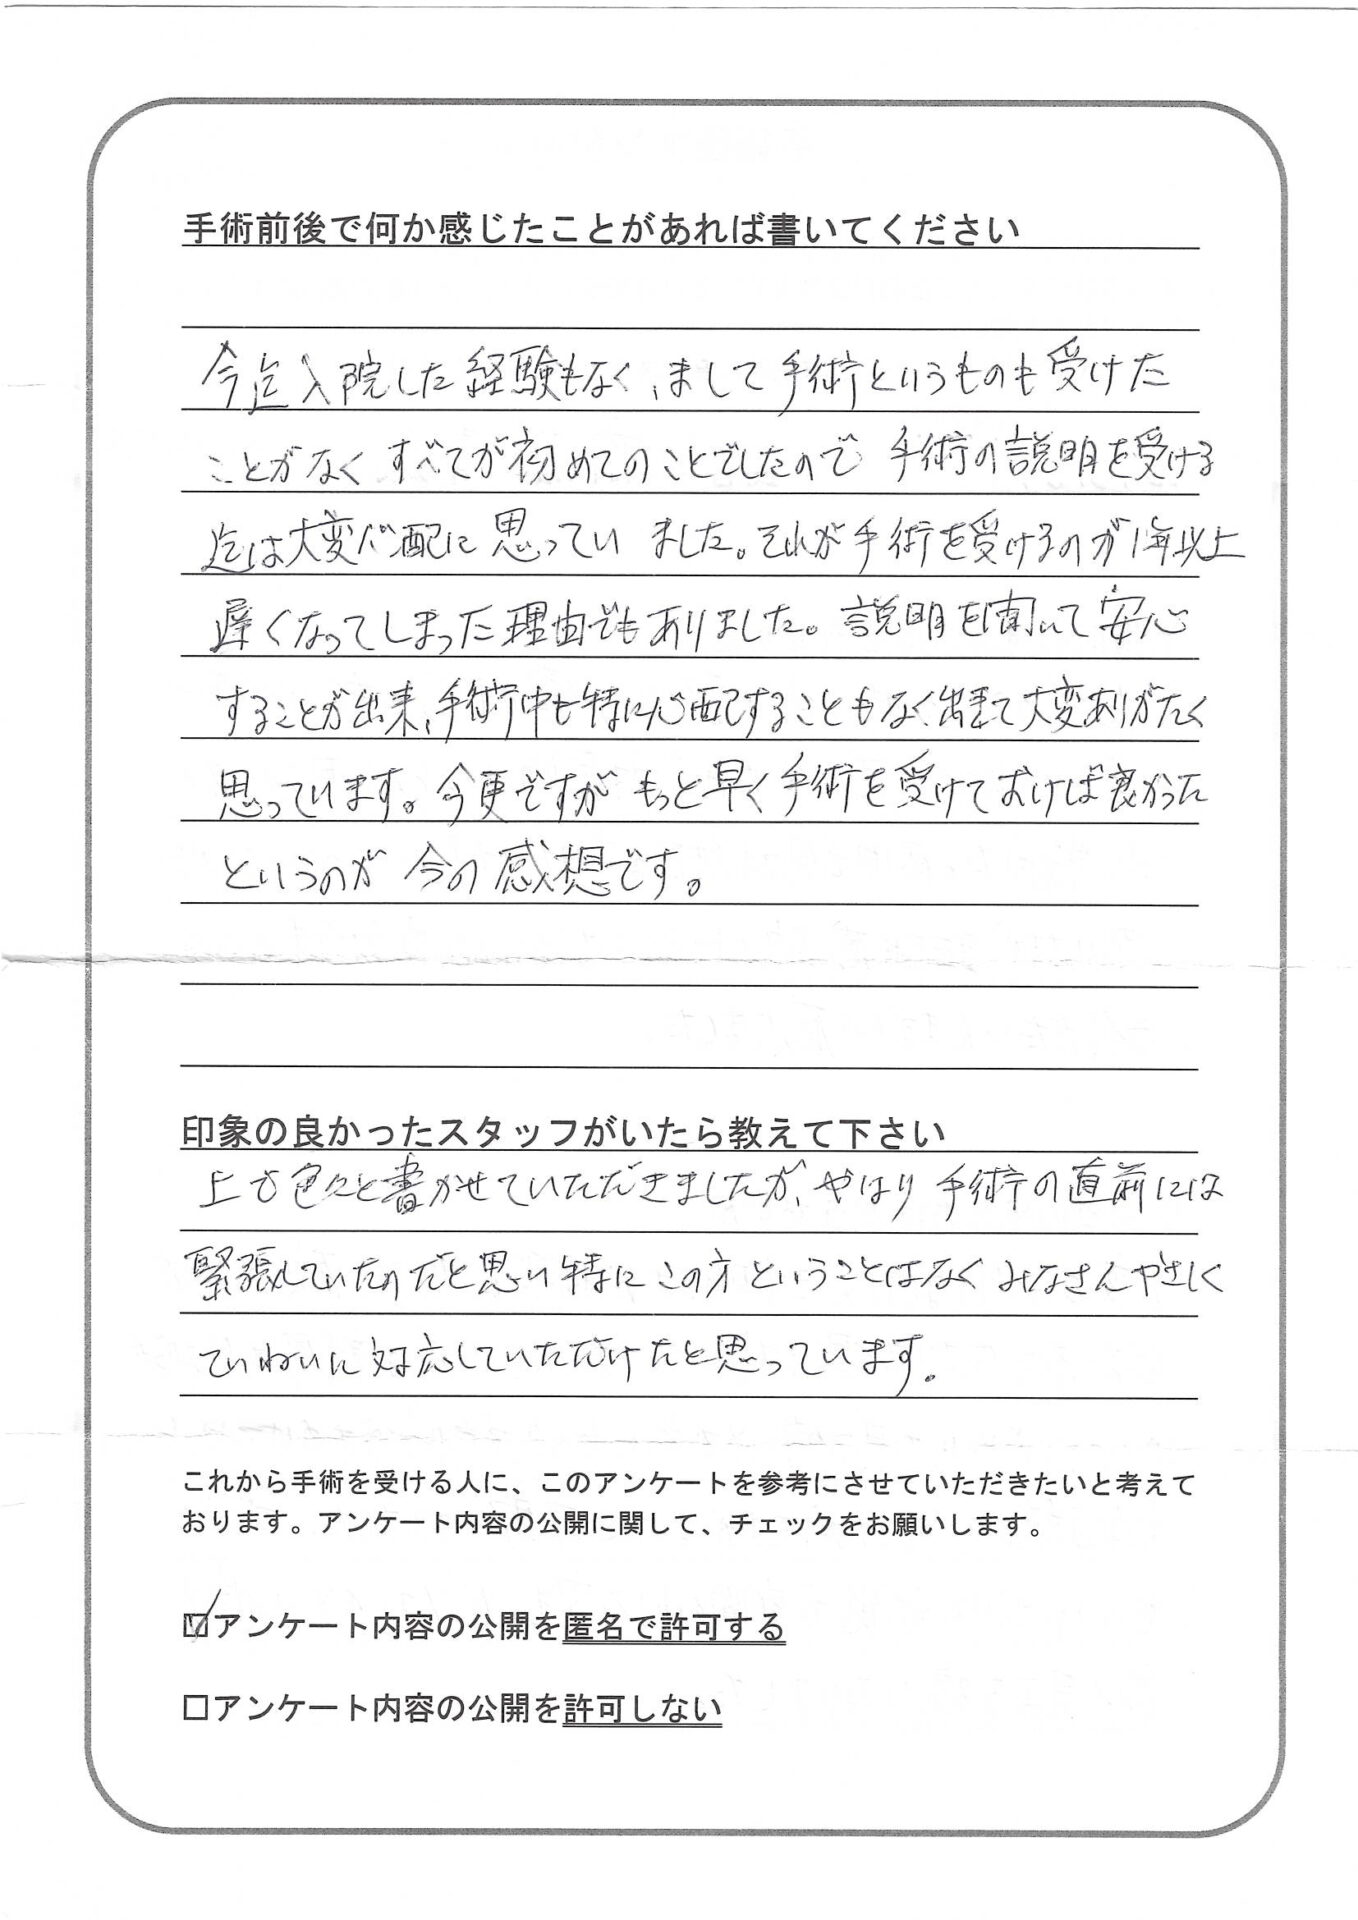 手術前後で何か感じたことがあれば書いてください
今迄入院した経験もなく、まして手術というものも受けた
ことがなくすべてが初めてのことでしたので手術の説明を受ける
迄は大変心配に思っていました。それが手術を受けるのが1年以上
遅くなってしまった理由でもありました。説明を聞いて安心
することが出来、手術中も特に心配することもなく出来て大変ありがたく
思っています。今更ですがもっと早く手術を受けておけば良かった
というのが今の感想です。
印象の良かったスタッフがいたら教えて下さい
上で色々と書かせていただきましたが、やはり手術の直前には
緊張していたのだと思い特にこの方ということはなくみなさんやさしく
ていねいに対応していただけたと思っています。
これから手術を受ける人に、このアンケートを参考にさせていただきたいと考えて
おります。アンケート内容の公開に関して、チェックをお願いします。
☑アンケート内容の公開を匿名で許可する
□アンケート内容の公開を許可しない